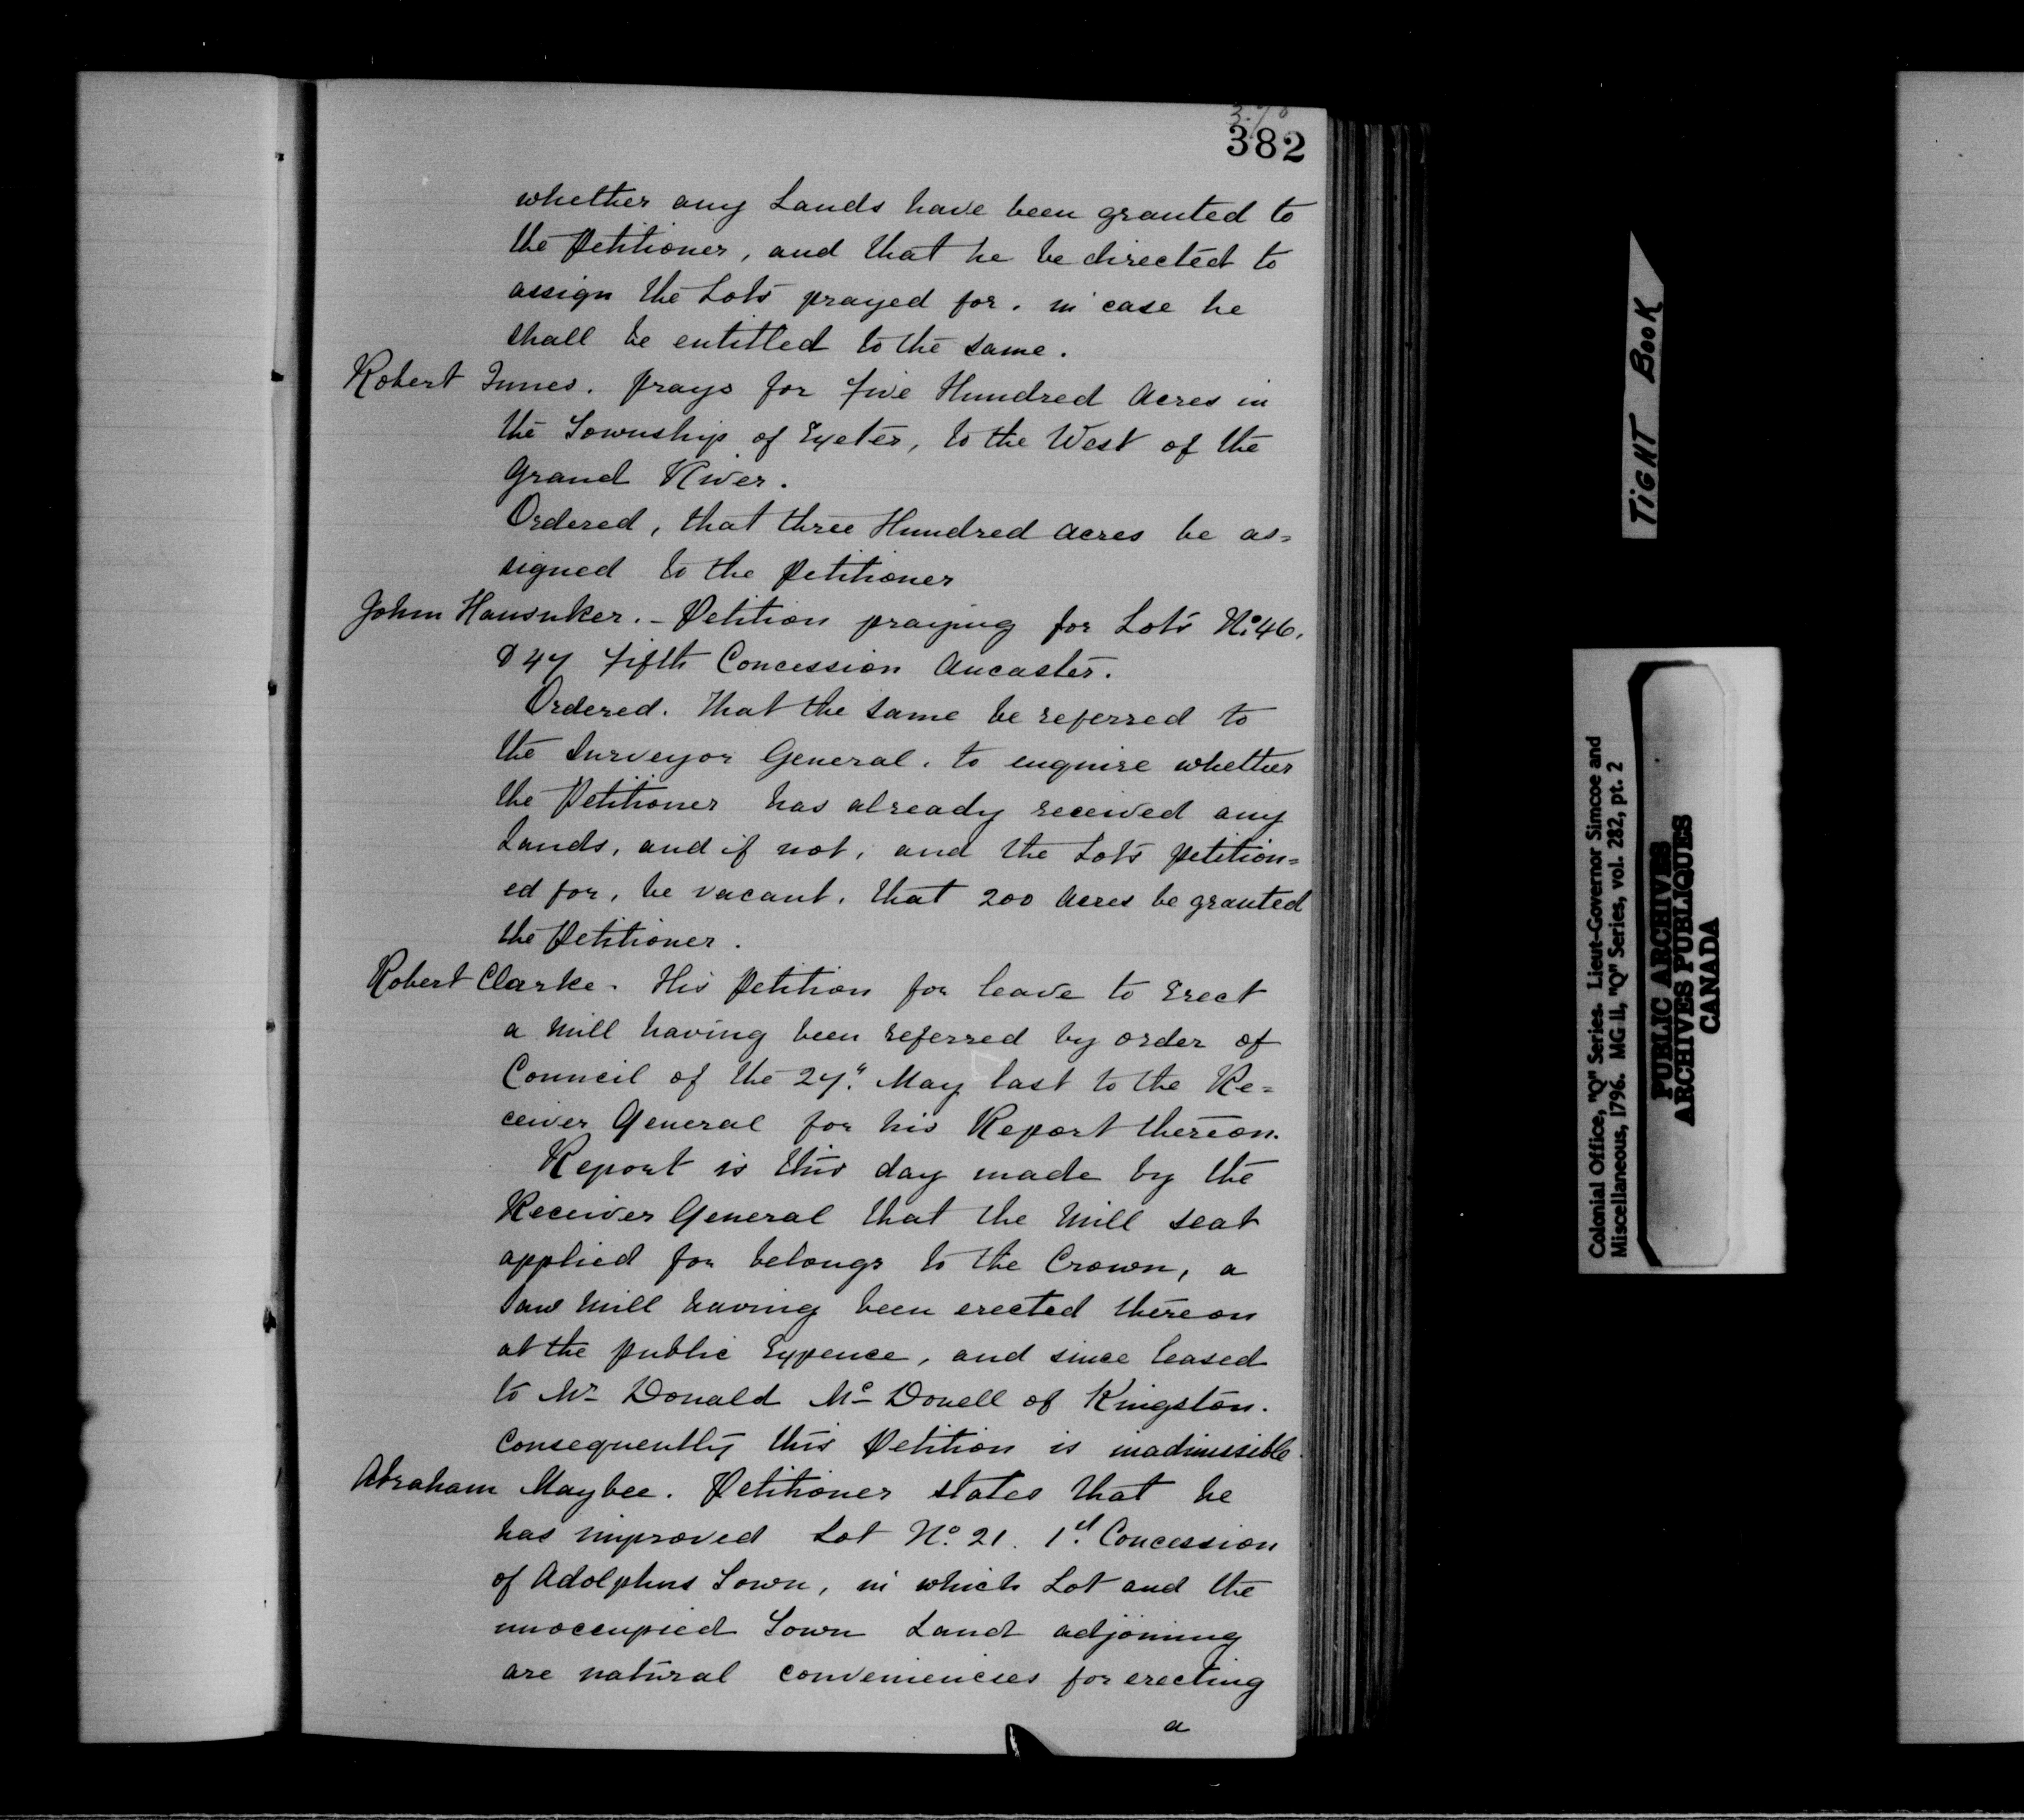 382
whether any Lands have been granted to
the Petitioner, and that he be directed to
assign the Lots prayed for, in case he
shall be entitled to the same.
Robert Innes. prays for five Hundred Acres in
the Township of Exeter, to the West of the
Grand River.
Ordered, that three Hundred acres be as=
signed to the Petitioner
John Hansuker. - Petition praying for Lots No. 46.
& 47 fifth Concession Ancaster.
Ordered. that the same be referred to
the Surveyor General, to enquire whether
the Petitioner has already received any
Lands, and if not, and the Lots petition=
ed for, be vacant, that 200 Acres be granted
the Petitioner.
Robert Clarke. His Petition for leave to Erect
a Mill having been referred by order of
Council of the 27". May last to the Re=
ceiver General for his Report thereon.
Report is this day made by the
Receiver General that the Mill seat
applied for belongs to the Crown, a
Saw Mill having been erected thereon
at the public Expence, and since leased
to Mr Donald Mc Donell of Kingston.
Consequently this Petition is inadmissible.
Abraham Maybee. Petitioner states that he
has improved Lot No. 21. 1st Concession
of Adolphus Town, in which Lot and the
unoccupied Town Land adjoining
are natural conveniencies for erecting
a
TIGHT BOOK
Colonial Office, "Q" Series. Lieut-Governor Simcoe and
Miscellaneous, 1796. MG 11, "Q" Series, vol. 282, pt. 2
PUBLIC ARCHIVES
ARCHIVES PUBLIQUES
CANADA